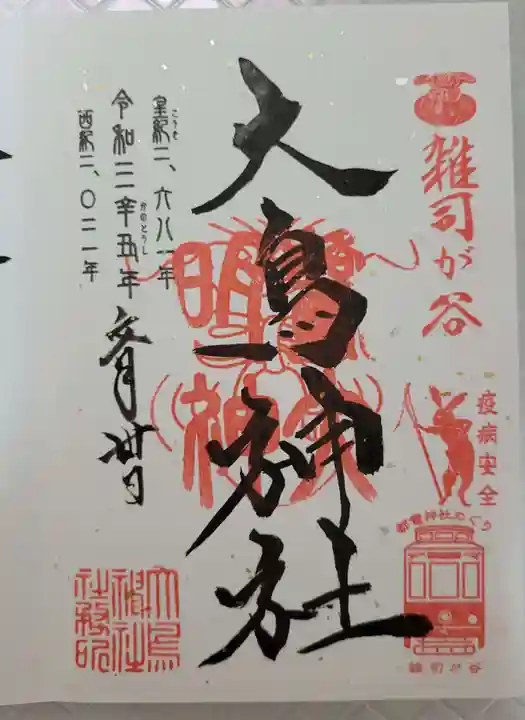 雑司が谷
疫病安全
都電神社めぐり
雑司が谷
大鳥神社
皇紀二、六八一年
こうき
令和三辛丑年
かのとうし
西紀二、〇二一年
大鳥
神社
社務所